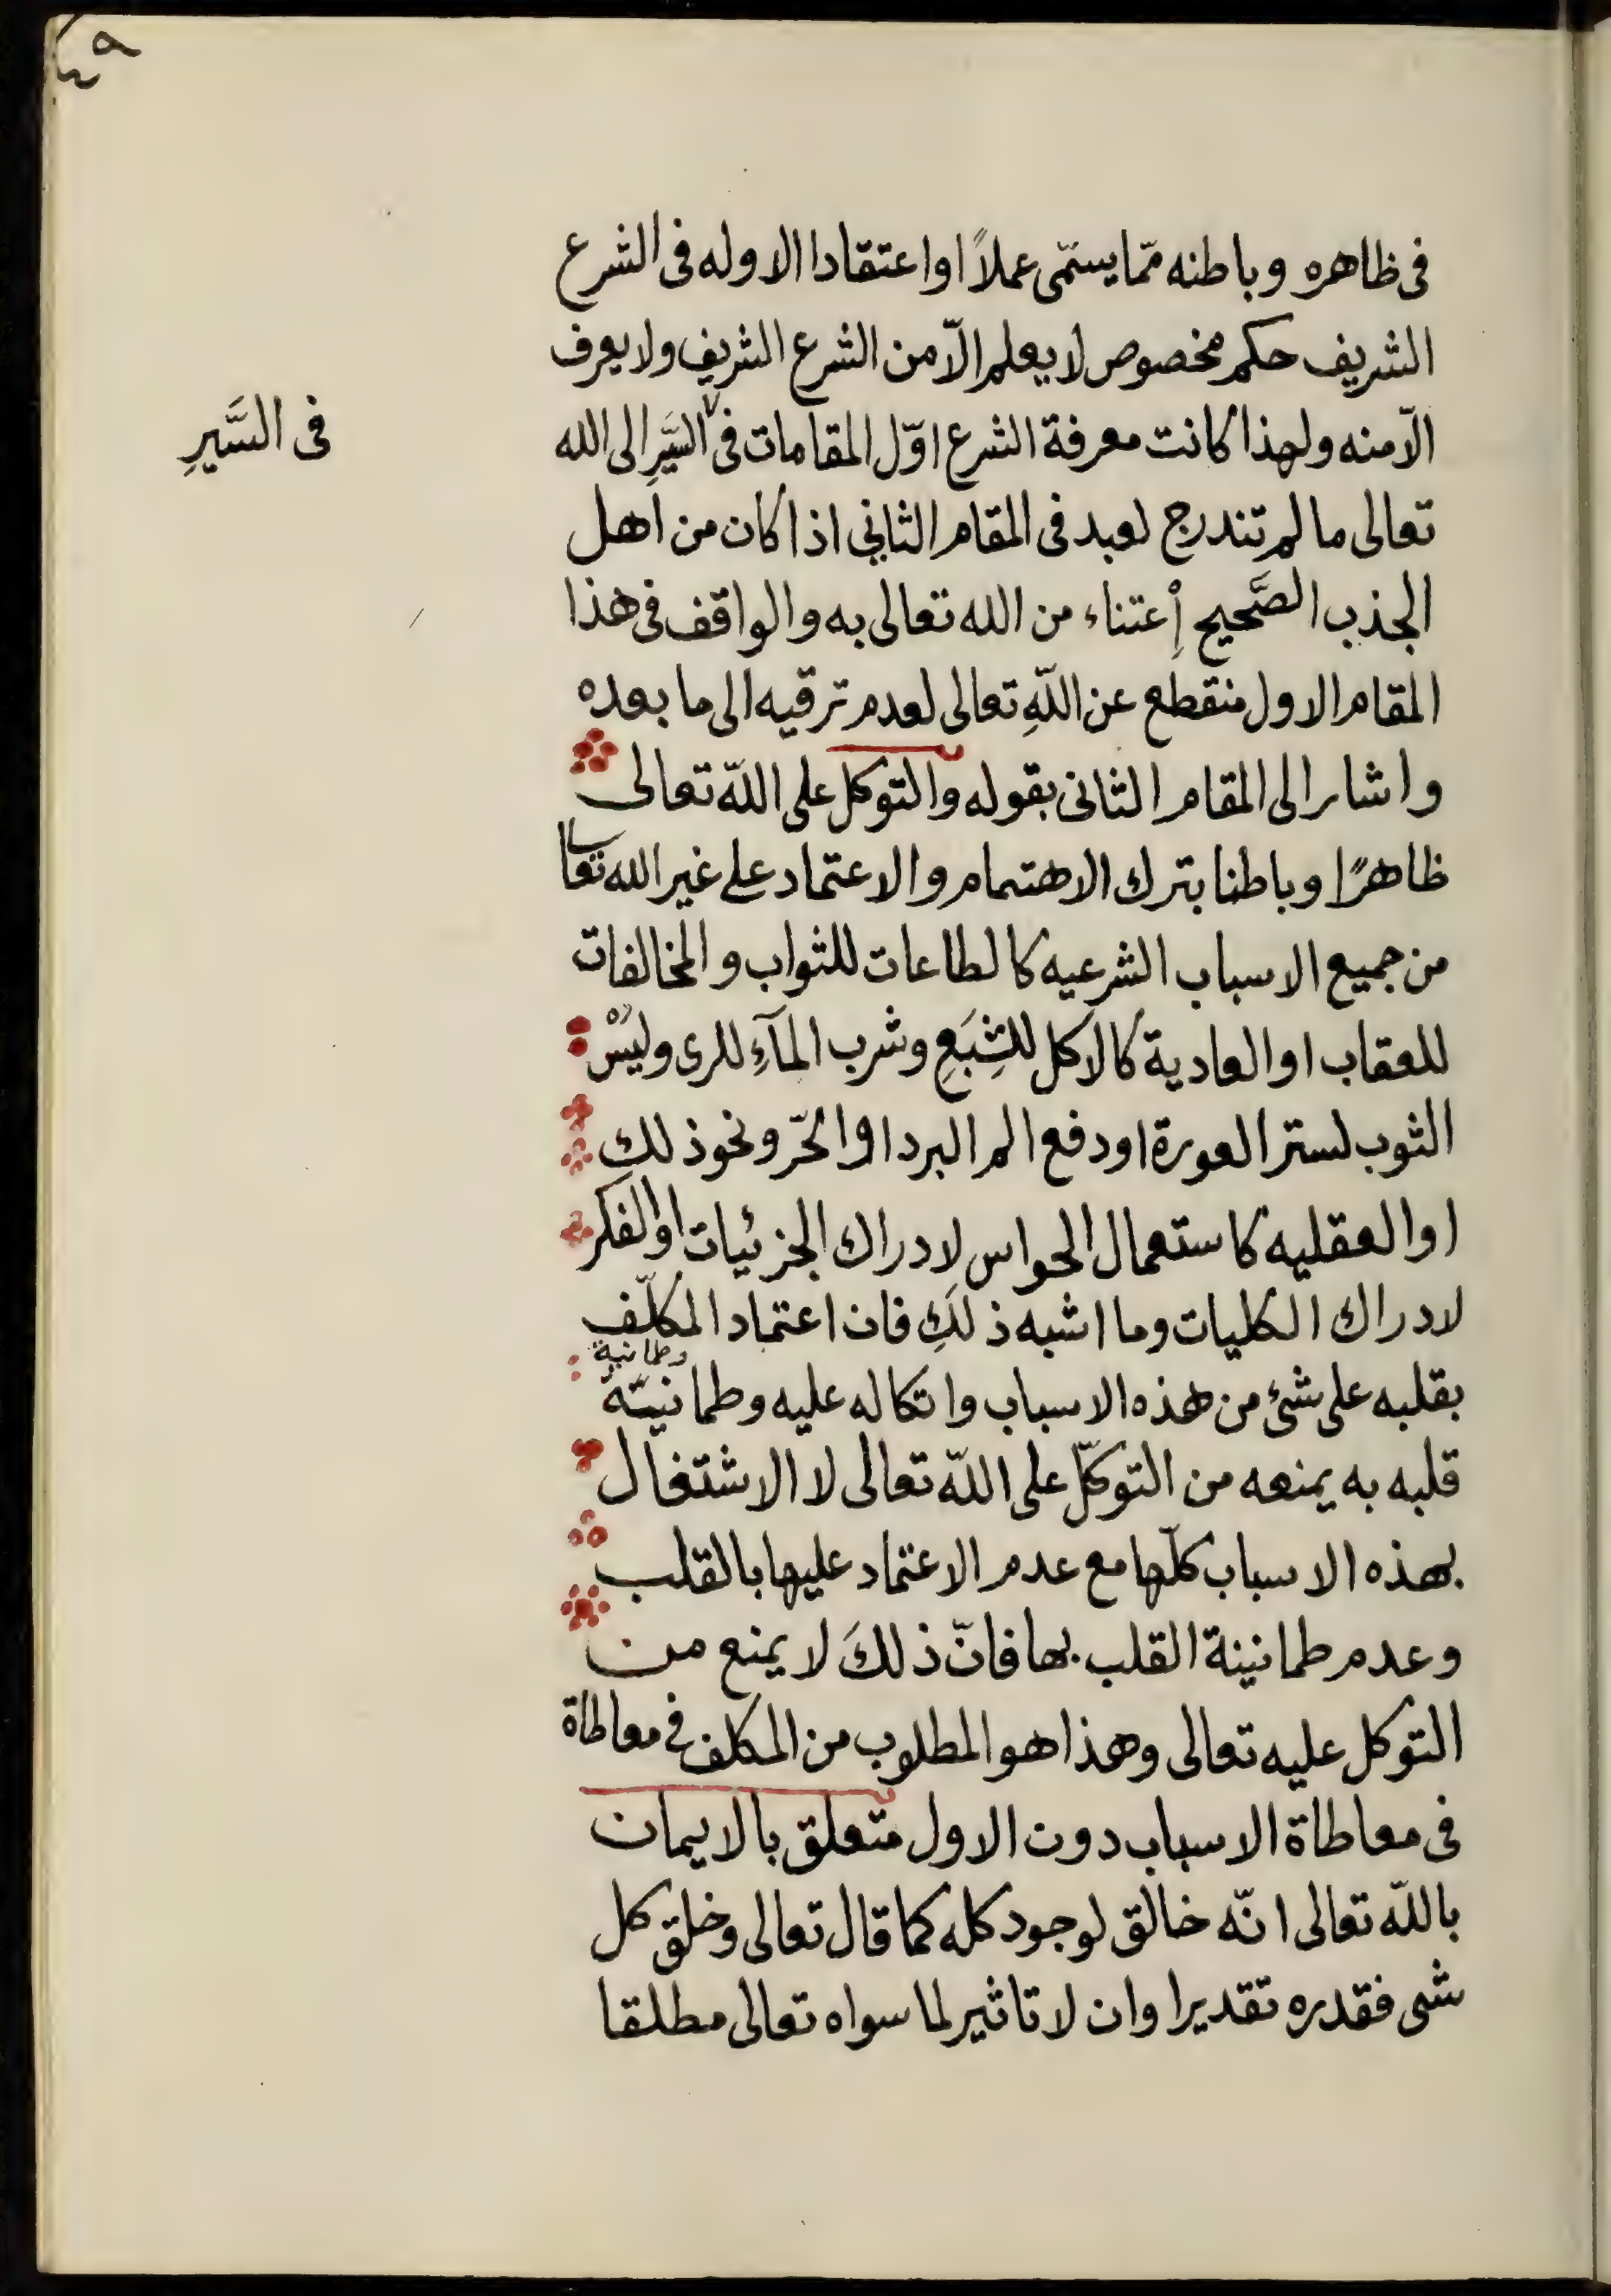 ٤٩
فى ظاهره وباطنه ممّا يسمّى عملاً او اعتقادا الا وله فى الشرع
الشريف حكم مخصوص لا يعلم الّا من الشرع الشريف ولا يعرف
الّا منه ولهذا كانت معرفة الشرع اوّل المقامات فى السَّيرِ الى الله
فى السَّيرِ
تعالى ما لم تندرج لعبد فى المقام الثانى اذا كان من اهل
الجذب الصَّحيح إعتناء من الله تعالى به والواقف فى هذا
المقام الاول منقطع عن اللّهِ تعالى لعدم ترقيه الى ما بعده
واشار الى المقام الثانى بقوله والتوكل على اللّه تعالى
ظاهرًا وباطنا بترك الاهتمام والاعتماد على غير الله تعالى
من جميع الاسباب الشرعيه كالطاعات للثواب والمخالفات
للعقاب او العادية كالاكل للشِبَعِ وشرب المآءِ للرى ولبُسْ
الثوب لستر العورة او دفع الم البرد او الحَرّ ونحو ذلك
او العقليه كاستعمال الحواس لادراك الجزئيات او الفكر
لادراك الكليات وما اشبه ذلكِ فان اعتماد المكلّف
وطمانية
بقلبه على شئ من هذه الاسباب واتكاله عليه وطمانيّة
قلبه به يمنعه من التوكّل على اللّه تعالى لا الاشتغال
بهذه الاسباب كلّها مع عدم الاعتماد عليها بالقلب
وعدم طمانينة القلب بها فانّ ذلكَ لا يمنع من
التوكل عليه تعالى وهذا هو المطلوب من المكلف فى معاطاة
فى معاطاة الاسباب دون الاول متعلق بالايمان
باللّه تعالى انّه خالق لوجود كله كما قال تعالى وخلق كل
شى فقدره تقديرا وان لا تاثير لما سواه تعالى مطلقا